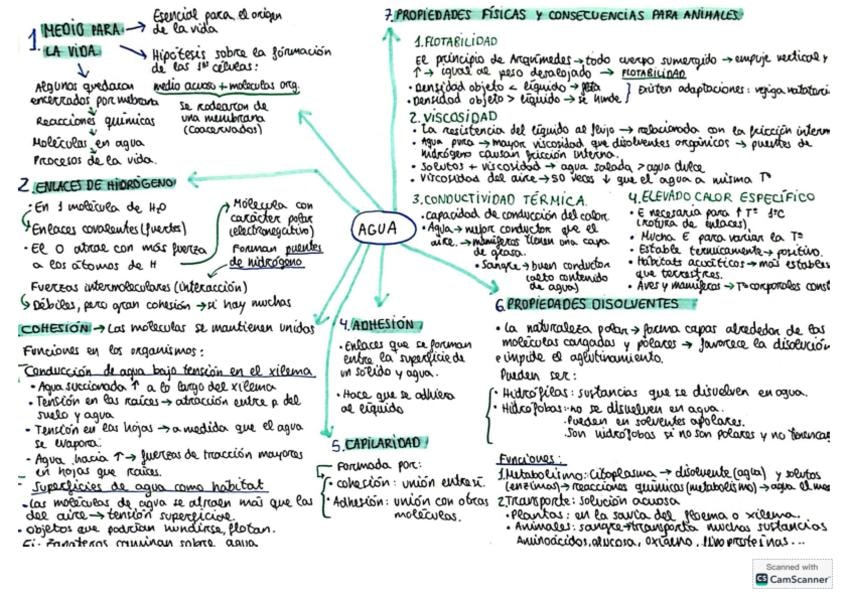 1. MEDIO PARA LA VIDA
→ Esencial para el origen de la vida
→ Hipótesis sobre la formación de las 1ªs células:
medio acuoso + moléculas org.
Se rodearon de
una membrana
(coacervados)
Algunos quedaron
encerrados por mbrana
Reacciones químicas
Moléculas en agua
Procesos de la vida.
2. ENLACES DE HIDRÓGENO
• En 1 molécula de H₂O
Enlaces covalentes (fuertes)
• El O atrae con más fuerza
a los átomos de H
Molécula con
carácter polar
(electronegativo)
Forman puentes
de hidrógeno
Fuerzas intermoleculares (interacción)
Débiles, pero gran cohesión → si hay muchas
COHESIÓN → Las moléculas se mantienen unidas
Funciones en los organismos:
- Conducción de agua bajo tensión en el xilema
• Agua succionada ↑ a lo largo del xilema
• Tensión en las raíces → atracción entre p del
suelo y agua
• Tensión en las hojas → a medida que el agua
se evapora
• Agua hacia ↑ → fuerzas de tracción mayores
en hojas que raíces.
- Superficies de agua como hábitat
• Las moléculas de agua se atraen más que las
del aire → tensión superficie.
• objetos que podrían hundirse, flotan.
Ej: Zapateros caminan sobre agua.
AGUA
4. ADHESIÓN
• Enlaces que se forman
entre la superficie de
un sólido y agua.
• Hace que se adhiera
al líquido
5. CAPILARIDAD
Formada por:
• cohesión: unión entre sí.
• Adhesión: unión con otras
moléculas.
7. PROPIEDADES FÍSICAS Y CONSECUENCIAS PARA ANIMALES
1. FLOTABILIDAD
El principio de Arquímedes → todo cuerpo sumergido → empuje vertical y
↑ → igual al peso desalojado → FLOTABILIDAD
• Densidad objeto < líquido → flota
• Densidad objeto > líquido → se hunde
} Existen adaptaciones: vejiga natatori
2. VISCOSIDAD
• La resistencia del líquido al flujo → relacionada con la fricción intern
• Agua pura → mayor viscosidad que disolventes orgánicos → puentes de
hidrógeno causan fricción interna.
• Solutos + viscosidad → agua salada > agua dulce
• Viscosidad del aire → 50 veces ↓ que el agua a misma Tª
3. CONDUCTIVIDAD TÉRMICA.
• Capacidad de conducción del calor
• Agua → mejor conductor que el
aire. → mamíferos tienen una capa
de grasa.
• Sangre → buen conductor
(alto contenido
de agua)
4. ELEVADO CALOR ESPECÍFICO
• E necesaria para ↑ Tª 1ºC
(rotura de enlaces).
• Mucha E para variar la Tª
• Estable térmicamente → positivo.
• Hábitats acuáticos → más estables
que terrestres.
• Aves y mamíferos → Tª corporales const
6. PROPIEDADES DISOLVENTES
• La naturaleza polar → forma capas alrededor de las
moléculas cargadas y polares → favorece la disolución
e impide el aglutinamiento.
Pueden ser:
• Hidrófilas: sustancias que se disuelven en agua.
• Hidrófobas: no se disuelven en agua.
Pueden en solventes apolares.
Son hidrófobas si no son polares y no tienen cas
Funciones:
1. Metabolismo: Citoplasma → disolvente (agua) y solutos
(enzimas) → reacciones químicas (metabolismo) → agua el me
2. Transporte: solución acuosa
• Plantas: en la savia del floema o xilema.
• Animales: sangre → transporta muchas sustancias
Aminoácidos, glucosa, oxígeno, fibroproteínas...
Scanned with
CS CamScanner